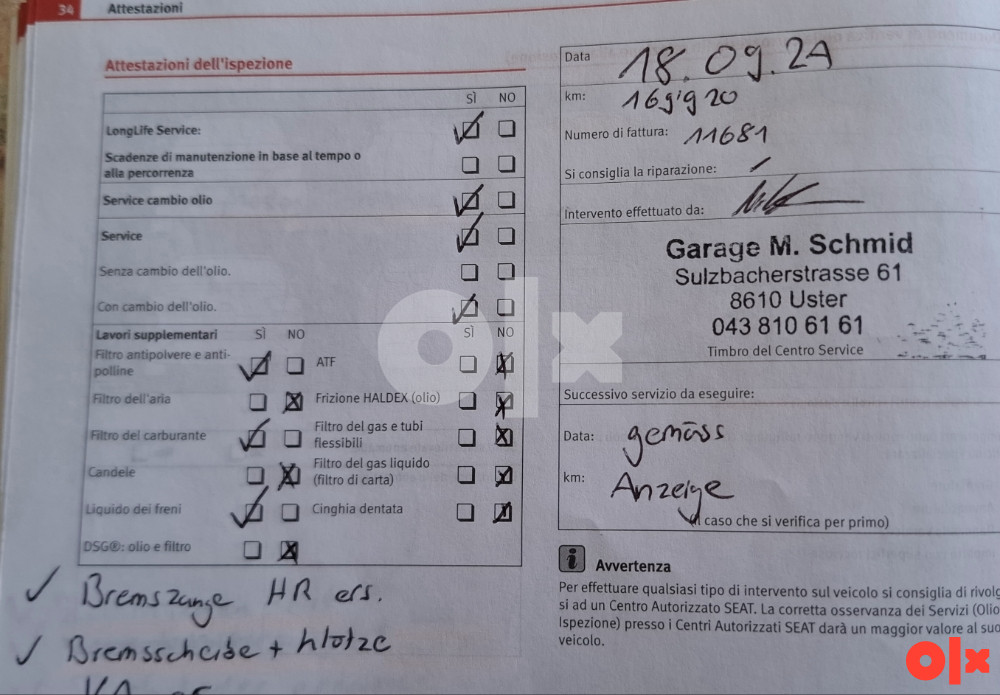 34 Attestazioni
Attestazioni dell'ispezione
SÌ NO
LongLife Service:
Scadenze di manutenzione in base al tempo o
alla percorrenza
Service cambio olio
Service
Senza cambio dell'olio.
Con cambio dell'olio.
Lavori supplementari SÌ NO SÌ NO
Filtro antipolvere e anti-
polline
ATF
Filtro dell'aria
Frizione HALDEX (olio)
Filtro del carburante
Filtro del gas e tubi
flessibili
Candele
Filtro del gas liquido
(filtro di carta)
Liquido dei freni
Cinghia dentata
DSG®: olio e filtro
✓ Bremszange HR ers.
✓ Bremsscheibe + klötze
Data 18.09.24
km: 169'920
Numero di fattura: 11681
Si consiglia la riparazione: /
Intervento effettuato da:
Garage M. Schmid
Sulzbacherstrasse 61
8610 Uster
043 810 61 61
Timbro del Centro Service
Successivo servizio da eseguire:
Data: gemäss
km: Anzeige
caso che si verifica per primo)
i Avvertenza
Per effettuare qualsiasi tipo di intervento sul veicolo si consiglia di rivolg
si ad un Centro Autorizzato SEAT. La corretta osservanza dei Servizi (Olio
Ispezione) presso i Centri Autorizzati SEAT darà un maggior valore al suo
veicolo.
olx
olx